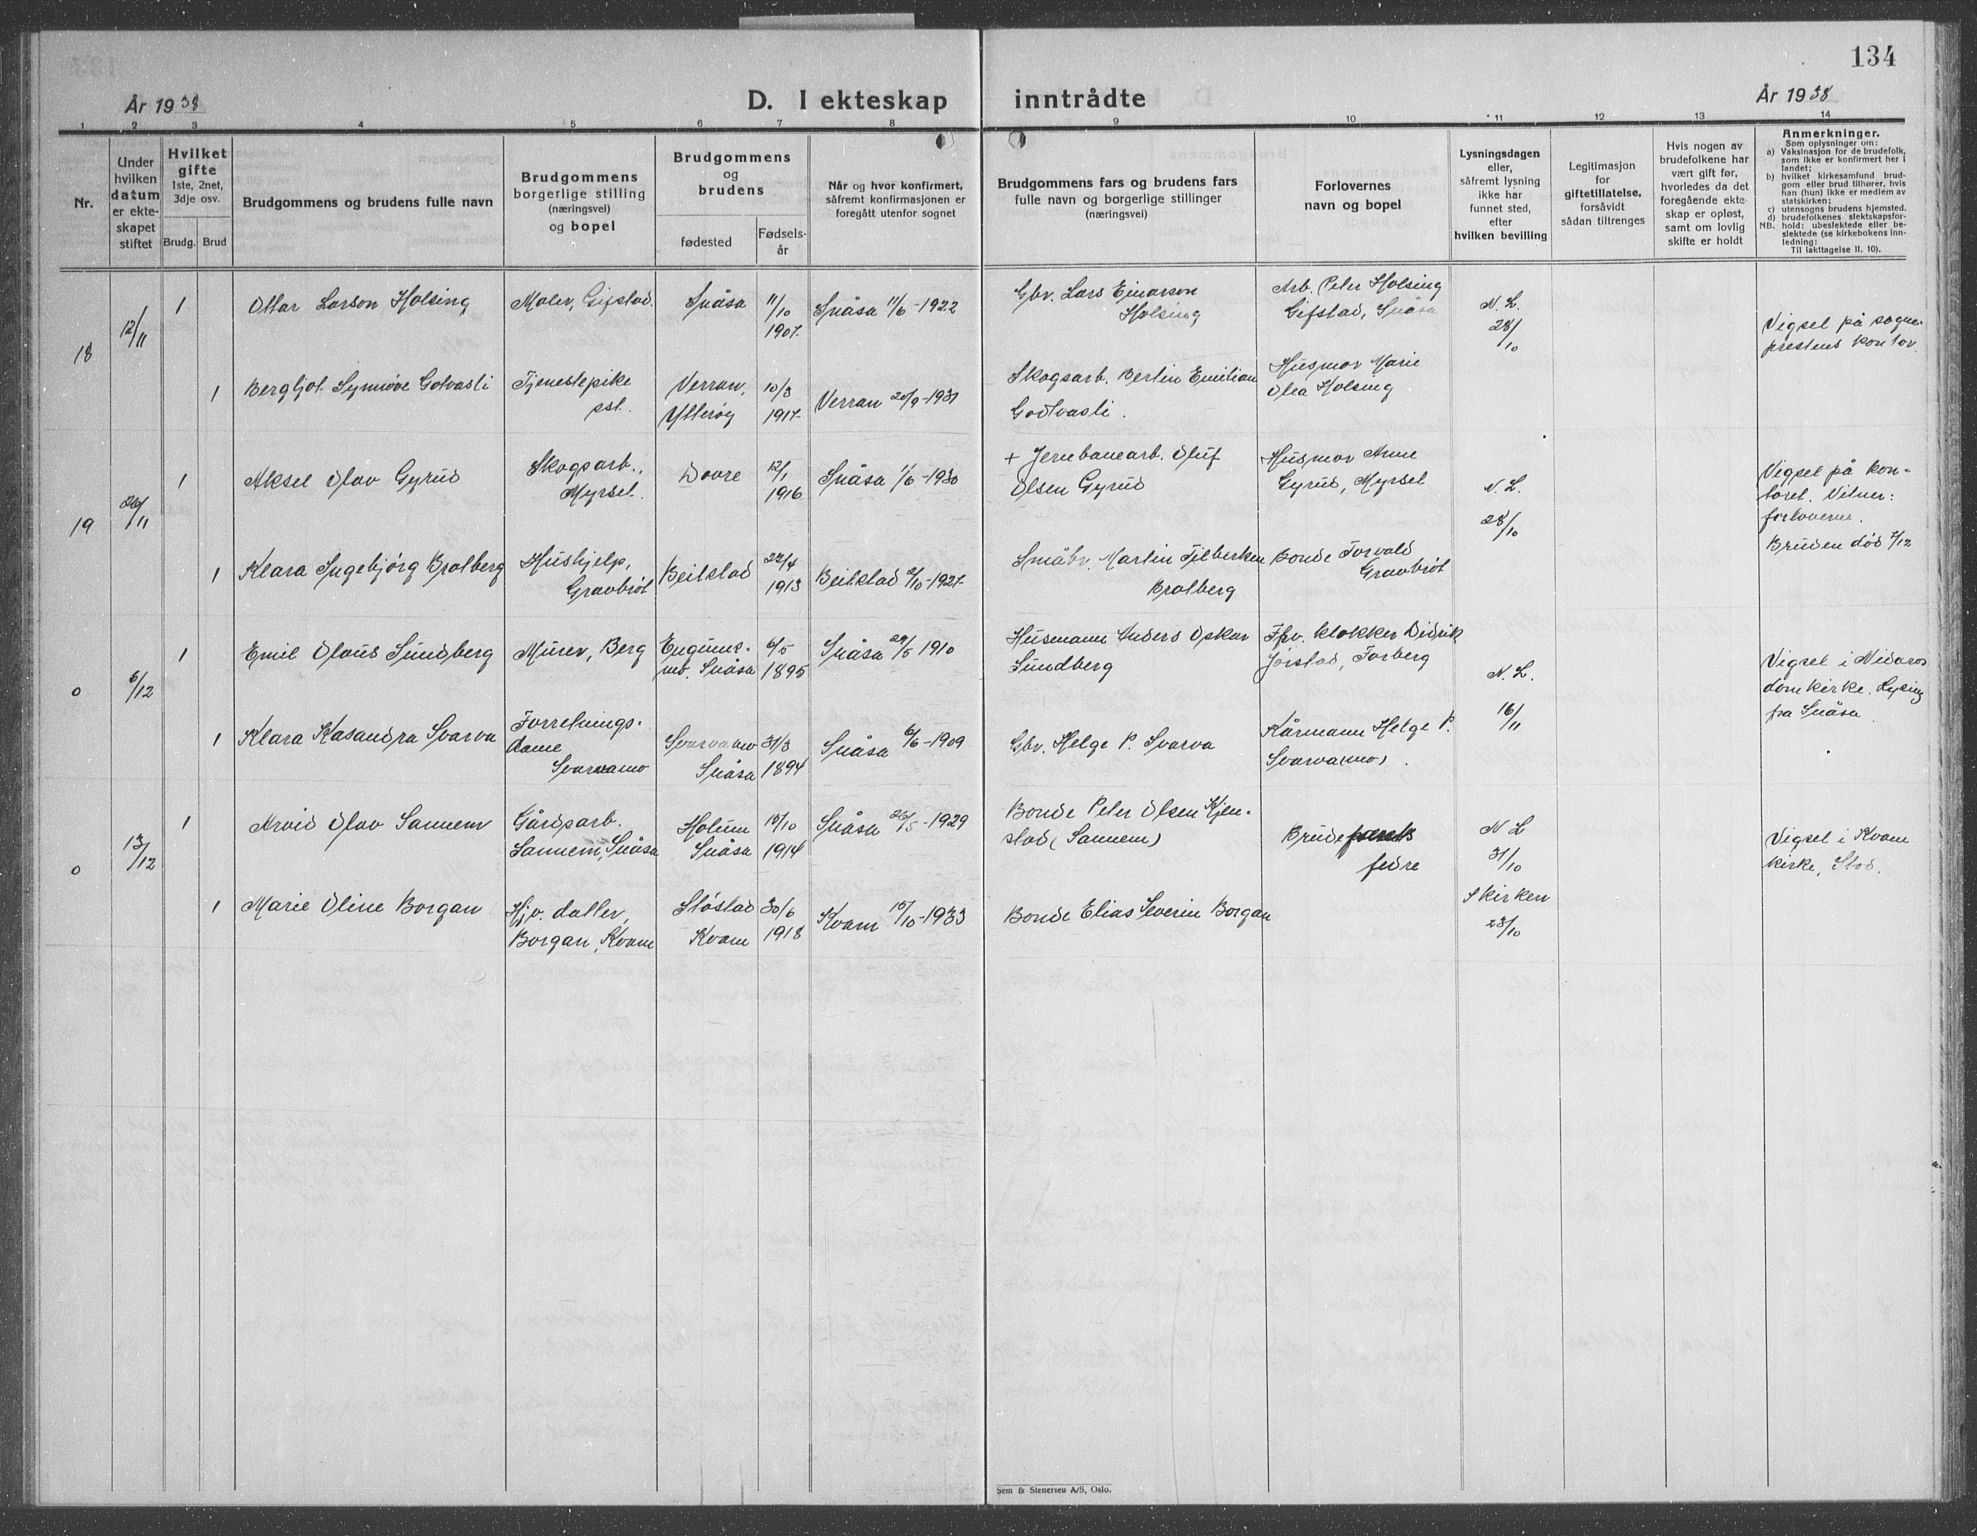 134
År 1938
D. I ekteskap inntrådte
År 1938
1 2 3 4 5 6 7 8 9 10 11 12 13 14
Nr.
Under hvilken datum er ekteskapet stiftet
Hvilket gifte
1ste, 2net, 3dje osv.
Brudg. Brud
Brudgommens og brudens fulle navn
Brudgommens borgerlige stilling (næringsvei) og bopel
Brudgommens og brudens
fødested
Fødselsår
Når og hvor konfirmert, såfremt konfirmasjonen er foregått utenfor sognet
Brudgommens fars og brudens fars fulle navn og borgerlige stillinger (næringsvei)
Forlovernes navn og bopel
Lysningsdagen eller, såfremt lysning ikke har funnet sted, efter hvilken bevilling
Legitimasjon for giftetillatelse, forsåvidt sådan tiltrenges
Hvis nogen av brudefolkene har vært gift før, hvorledes da det foregående ekteskap er opløst, samt om lovlig skifte er holdt
Anmerkninger.
Som oplysninger om:
a) Vaksinasjon for de brudefolk, som ikke er konfirmert her i landet;
b) hvilket kirkesamfund brudgom eller brud tilhører, hvis han (hun) ikke er medlem av statskirken;
c) utensogns brudens hjemsted.
d) brudefolkenes slektskapsforhold: ubeslektede eller beslektede (se kirkebokens innledning:
NB. Til iakttagelse II. 10).
18 12/11 1 Ottar Larson Holsing Maler, Gifstad. Snåsa 11/10 1907 Snåsa 11/6-1922 Gbr. Lars Einarson Holsing Arb. Peter Holsing Gifstad, Snåsa N. L. 28/10 Vigsel på sogneprestens kontor
1 Bergljot Synnöve Gotvasli Tjenestepike sst. Verran, Ytterøy 10/3 1917 Verran 20/9-1931 Skogsarb. Bertin Emilian Godtvasli. Husmor Marie Olea Holsing
19 26/11 1 Aksel Olav Gyrud Skogsarb., Myrset. Dovre 12/1 1916 Snåsa 1/6-1930 + Jernbanearb. Oluf Olsen Gyrud Husmor Anne Gyrud, Myrset N. L. 28/10 Vigsel på kontoret. Vitner: forloverne. Bruden död 7/12
1 Klara Ingebjörg Bratberg Hushjelp, Gravbröt Beitstad 22/4 1913 Beitstad 2/10-1927 Småbr. Martin Bratberg Bonde Torvald Gravbröt
0 6/12 1 Emil Olaus Sundberg Murer, Berg Snåsa 6/5 1895 Snåsa 29/5 1910 Husmann Anders Oskar Sundberg Fhv. klokker Didrik Jörstad, Forberg N. L. 16/11 Vigsel i Nidaros domkirke. Lysing fra Snåsa
1 Klara Kasandra Svarva Forretningsdame Svarvamo Svarvamo Snåsa 31/3 1894 Snåsa 6/6-1909 Gbr. Helge P. Svarva Kårmann Helge P. Svarva(mo).
0 13/12 1 Arvid Olav Sannem Gårdsarb. Sannem, Snåsa Holum Snåsa 10/10 1914 Snåsa 26/5-1929 Bonde Peter Olsen Kjenstad (Sannem) Brude fedre N L 31/10 Vigsel i Kvam kirke, Stod.
1 Marie Oline Borgan Hjv. datter, Borgan, Kvam Kvam 30/6 1918 Kvam 15/10-1933 Bonde Elias Severin Borgan I kirken 23/10
Sem & Stenersen A/S, Oslo.